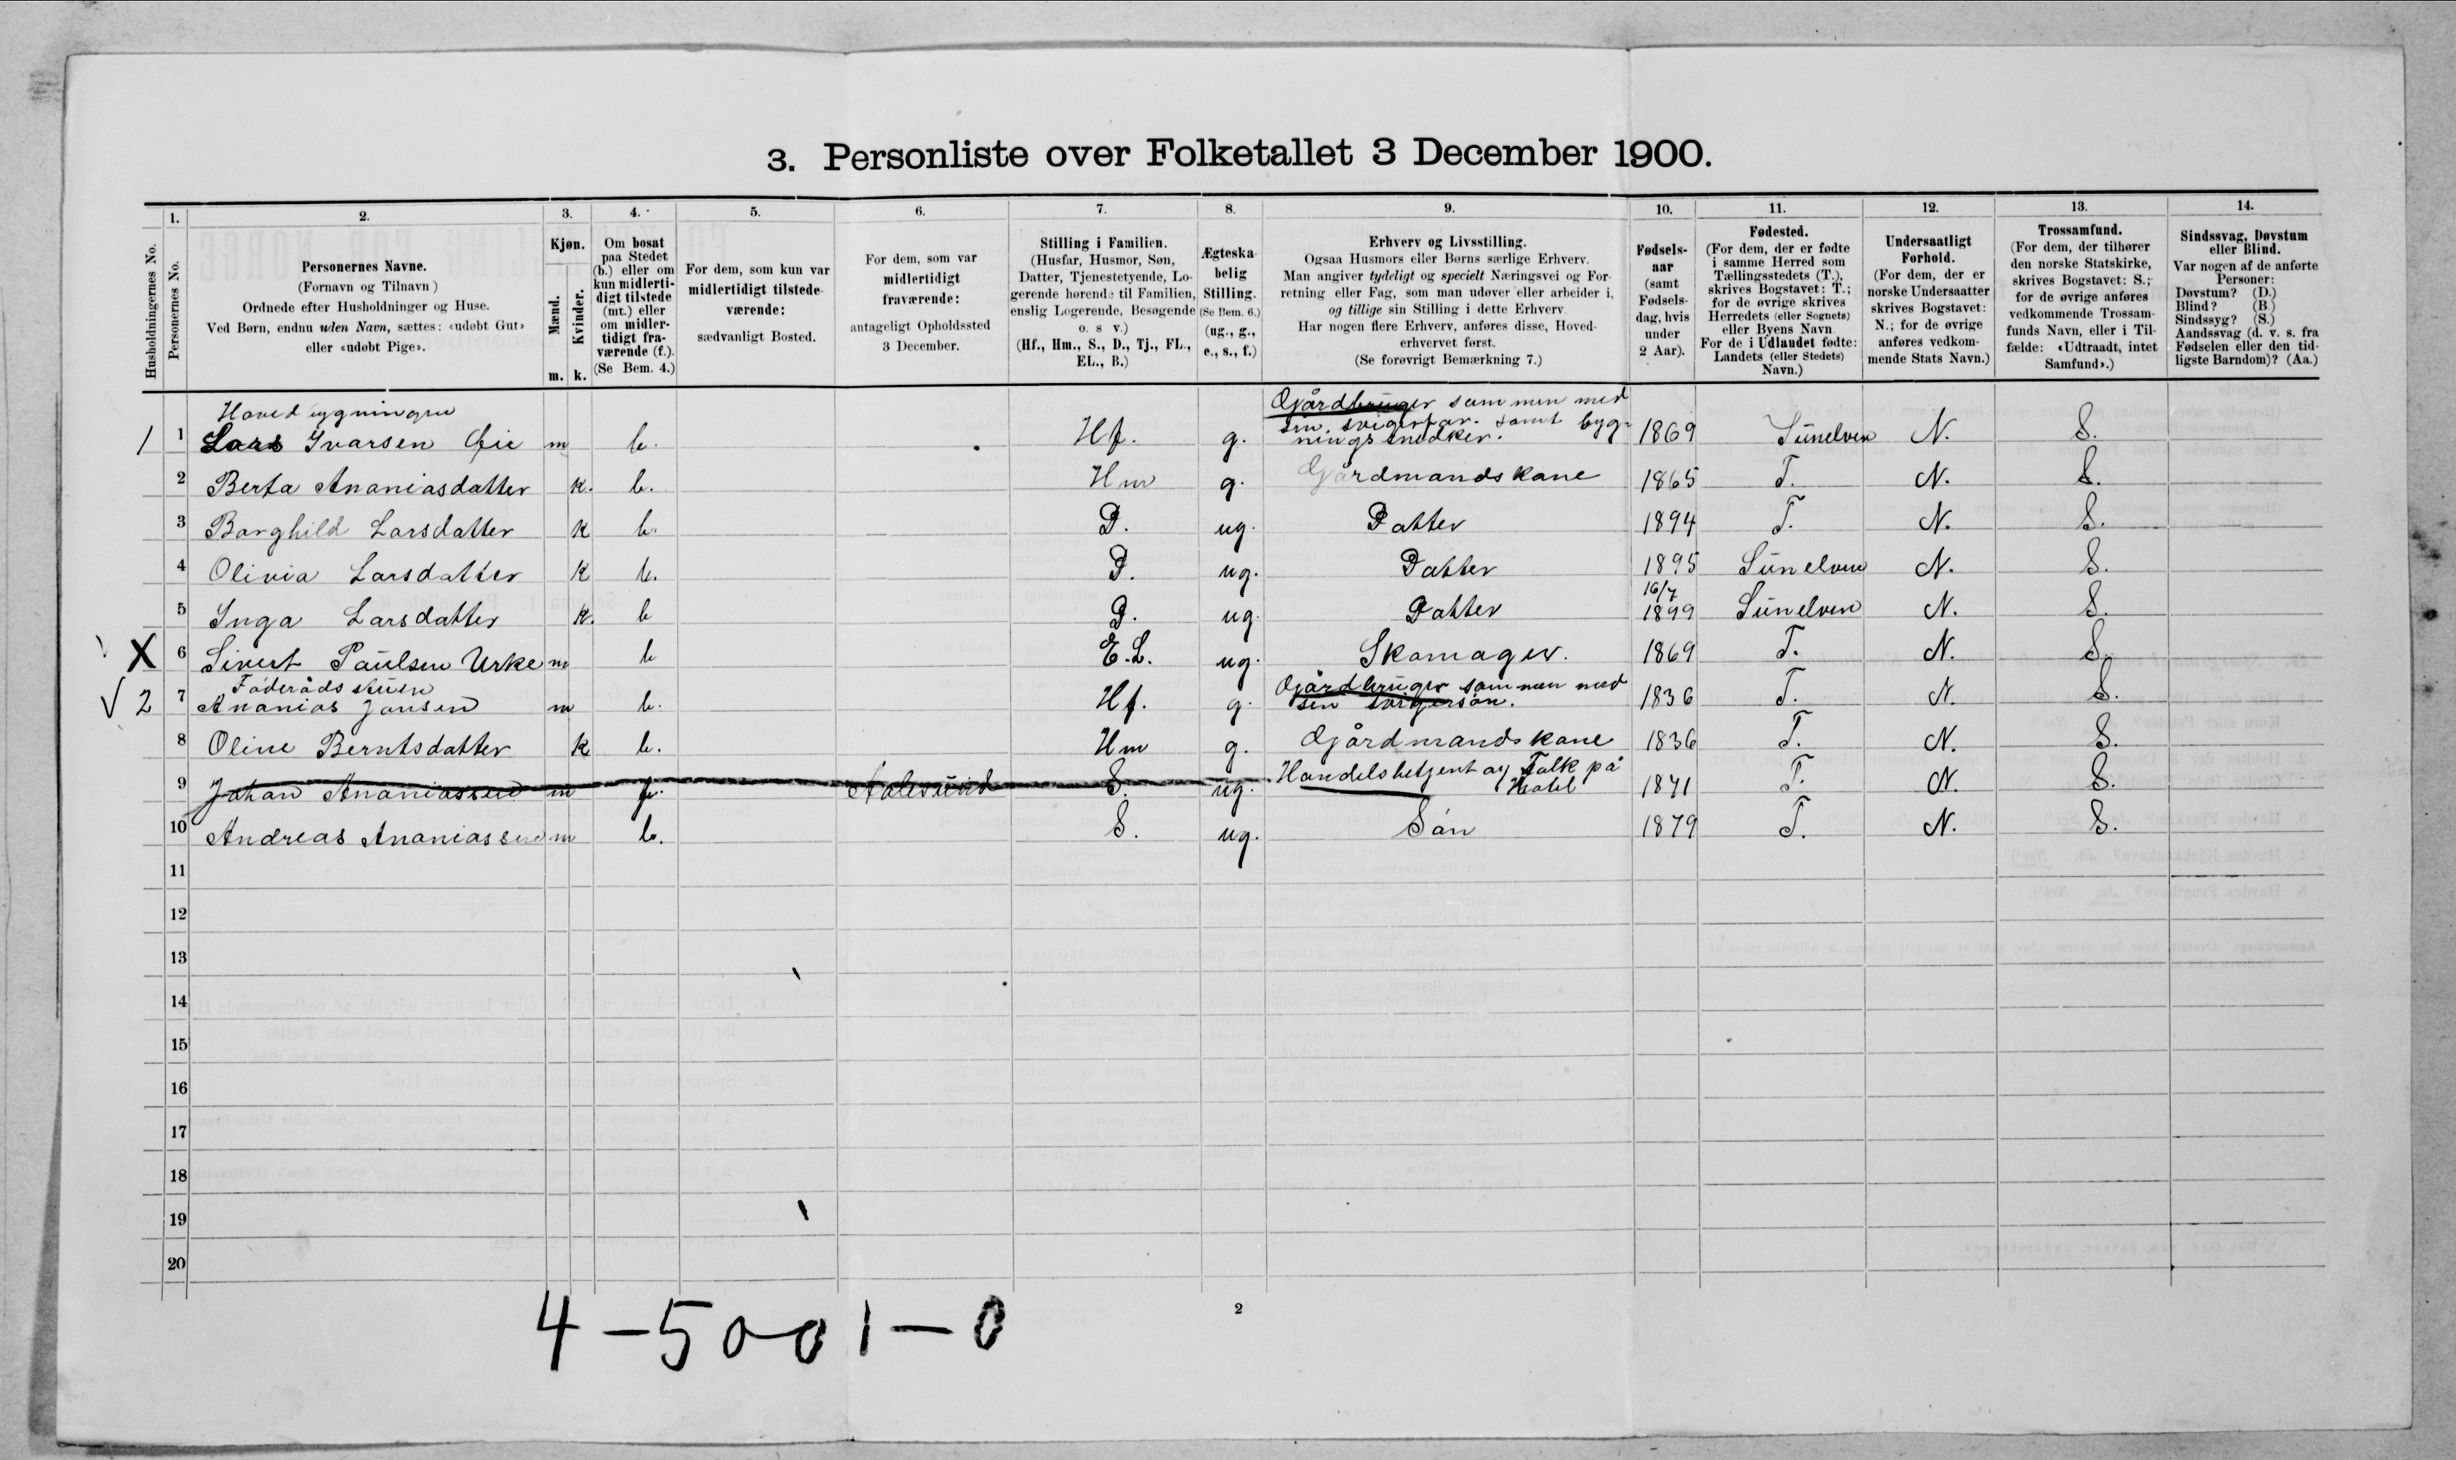 3. Personliste over Folketallet 3 December 1900.
1. 2. 3. 4. 5. 6. 7. 8. 9. 10. 11. 12. 13. 14.
Husholdningernes No.
Personernes No.
Personernes Navne.
(Fornavn og Tilnavn)
Ordnede efter Husholdninger og Huse.
Ved Børn, endnu uden Navn, sættes: «udøbt Gut»
eller «udøbt Pige».
Kjøn.
Mænd.
Kvinder.
m. k.
Om bosat
paa Stedet
(b.) eller om
kun midlerti-
digt tilstede
(mt.) eller
om midler-
tidigt fra-
værende (f.).
(Se Bem. 4.)
For dem, som kun var
midlertidigt tilstede-
værende:
sædvanligt Bosted.
For dem, som var
midlertidigt
fraværende:
antageligt Opholdssted
3 December.
Stilling i Familien.
(Husfar, Husmor, Søn,
Datter, Tjenestetyende, Lo-
gerende hørende til Familien,
enslig Logerende, Besøgende
o. s v.)
(Hf., Hm., S., D., Tj., FL.,
EL., B.)
Ægteska-
belig
Stilling.
(Se Bem. 6.)
(ug., g.,
e., s., f.)
Erhverv og Livsstilling.
Ogsaa Husmors eller Børns særlige Erhverv.
Man angiver tydeligt og specielt Næringsvei og For-
retning eller Fag, som man udøver eller arbeider i,
og tillige sin Stilling i dette Erhverv.
Har nogen flere Erhverv, anføres disse, Hoved-
erhvervet først.
(Se forøvrigt Bemærkning 7.)
Fødsels-
aar
(samt
Fødsels-
dag, hvis
under
2 Aar).
Fødested.
(For dem, der er fødte
i samme Herred som
Tællingsstedets (T.),
skrives Bogstavet: T.;
for de øvrige skrives
Herredets (eller Sognets)
eller Byens Navn.
For de i Udlandet fødte:
Landets (eller Stedets)
Navn.)
Undersaatligt
Forhold.
(For dem, der er
norske Undersaatter
skrives Bogstavet:
N.; for de øvrige
anføres vedkom-
mende Stats Navn.)
Trossamfund.
(For dem, der tilhører
den norske Statskirke,
skrives Bogstavet: S.;
for de øvrige anføres
vedkommende Trossam-
funds Navn, eller i Til-
fælde: «Udtraadt, intet
Samfund».)
Sindssvag, Døvstum
eller Blind.
Var nogen af de anførte
Personer:
Døvstum? (D.)
Blind? (B.)
Sindssyg? (S.)
Aandssvag (d. v. s. fra
Fødselen eller den tid-
ligste Barndom)? (Aa.)
Hovedbygningen
Gårdbruger sammen med
sin svigerfar. samt byg-
1 1 Lars Ivarsen m b. Hf. g. ningssnedker. 1869 Sunelven N. S.
2 Berta Ananiasdatter k. b. Hm g. Gårdmandskone 1865 T. N. S.
3 Borghild Larsdatter k b. D. ug. Datter 1894 T. N. S.
4 Olivia Larsdatter k b. D. ug. Datter 1895 Sunelven N. S.
16/7
5 Inga Larsdatter k. b D. ug. Datter 1899 Sunelven N. S.
X 6 Sivert Paulsen Urke m b E.L. ug. Skomager. 1869 T. N. S.
Føderådsstuen
Gårdbruger sammen med
√ 2 7 Ananias Jansen m b. Hf. g. sin svigersøn. 1836 T. N. S.
8 Oline Berntsdatter k b. Hm g. Gårdmandskone 1836 T. N. S.
Handelsbetjent og Tolk på
9 Johan Ananiassen m f. Aalesund S. ug. Hotel 1871 T. N. S.
10 Andreas Ananiassen m b. S. ug. Søn 1879 T. N. S.
11
12
13
14
15
16
17
18
19
20
2
4-5001-0